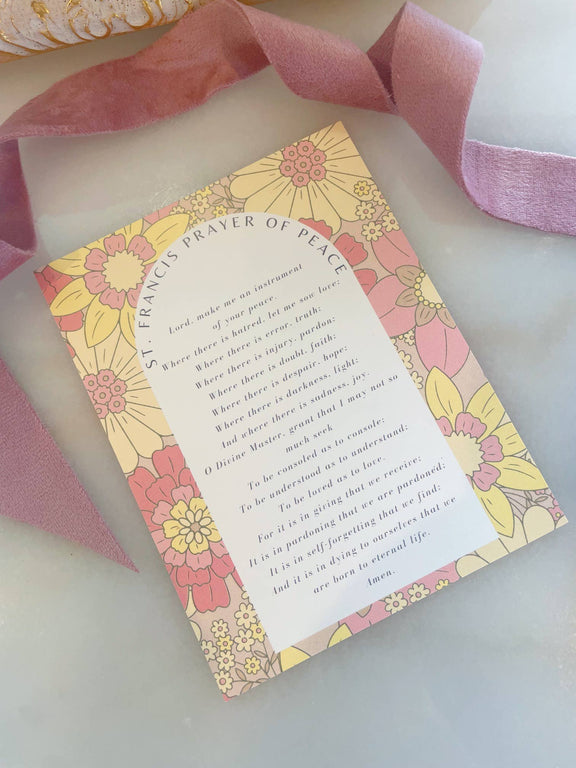 ST. FRANCIS PRAYER OF PEACE
Lord, make me an instrument
of your peace.
Where there is hatred, let me sow love;
Where there is error, truth;
Where there is injury, pardon;
Where there is doubt, faith;
Where there is despair, hope;
Where there is darkness, light;
And where there is sadness, joy.
O Divine Master, grant that I may not so
much seek
To be consoled as to console;
To be understood as to understand;
To be loved as to love.
For it is in giving that we receive;
It is in pardoning that we are pardoned;
It is in self-forgetting that we find;
And it is in dying to ourselves that we
are born to eternal life.
Amen.